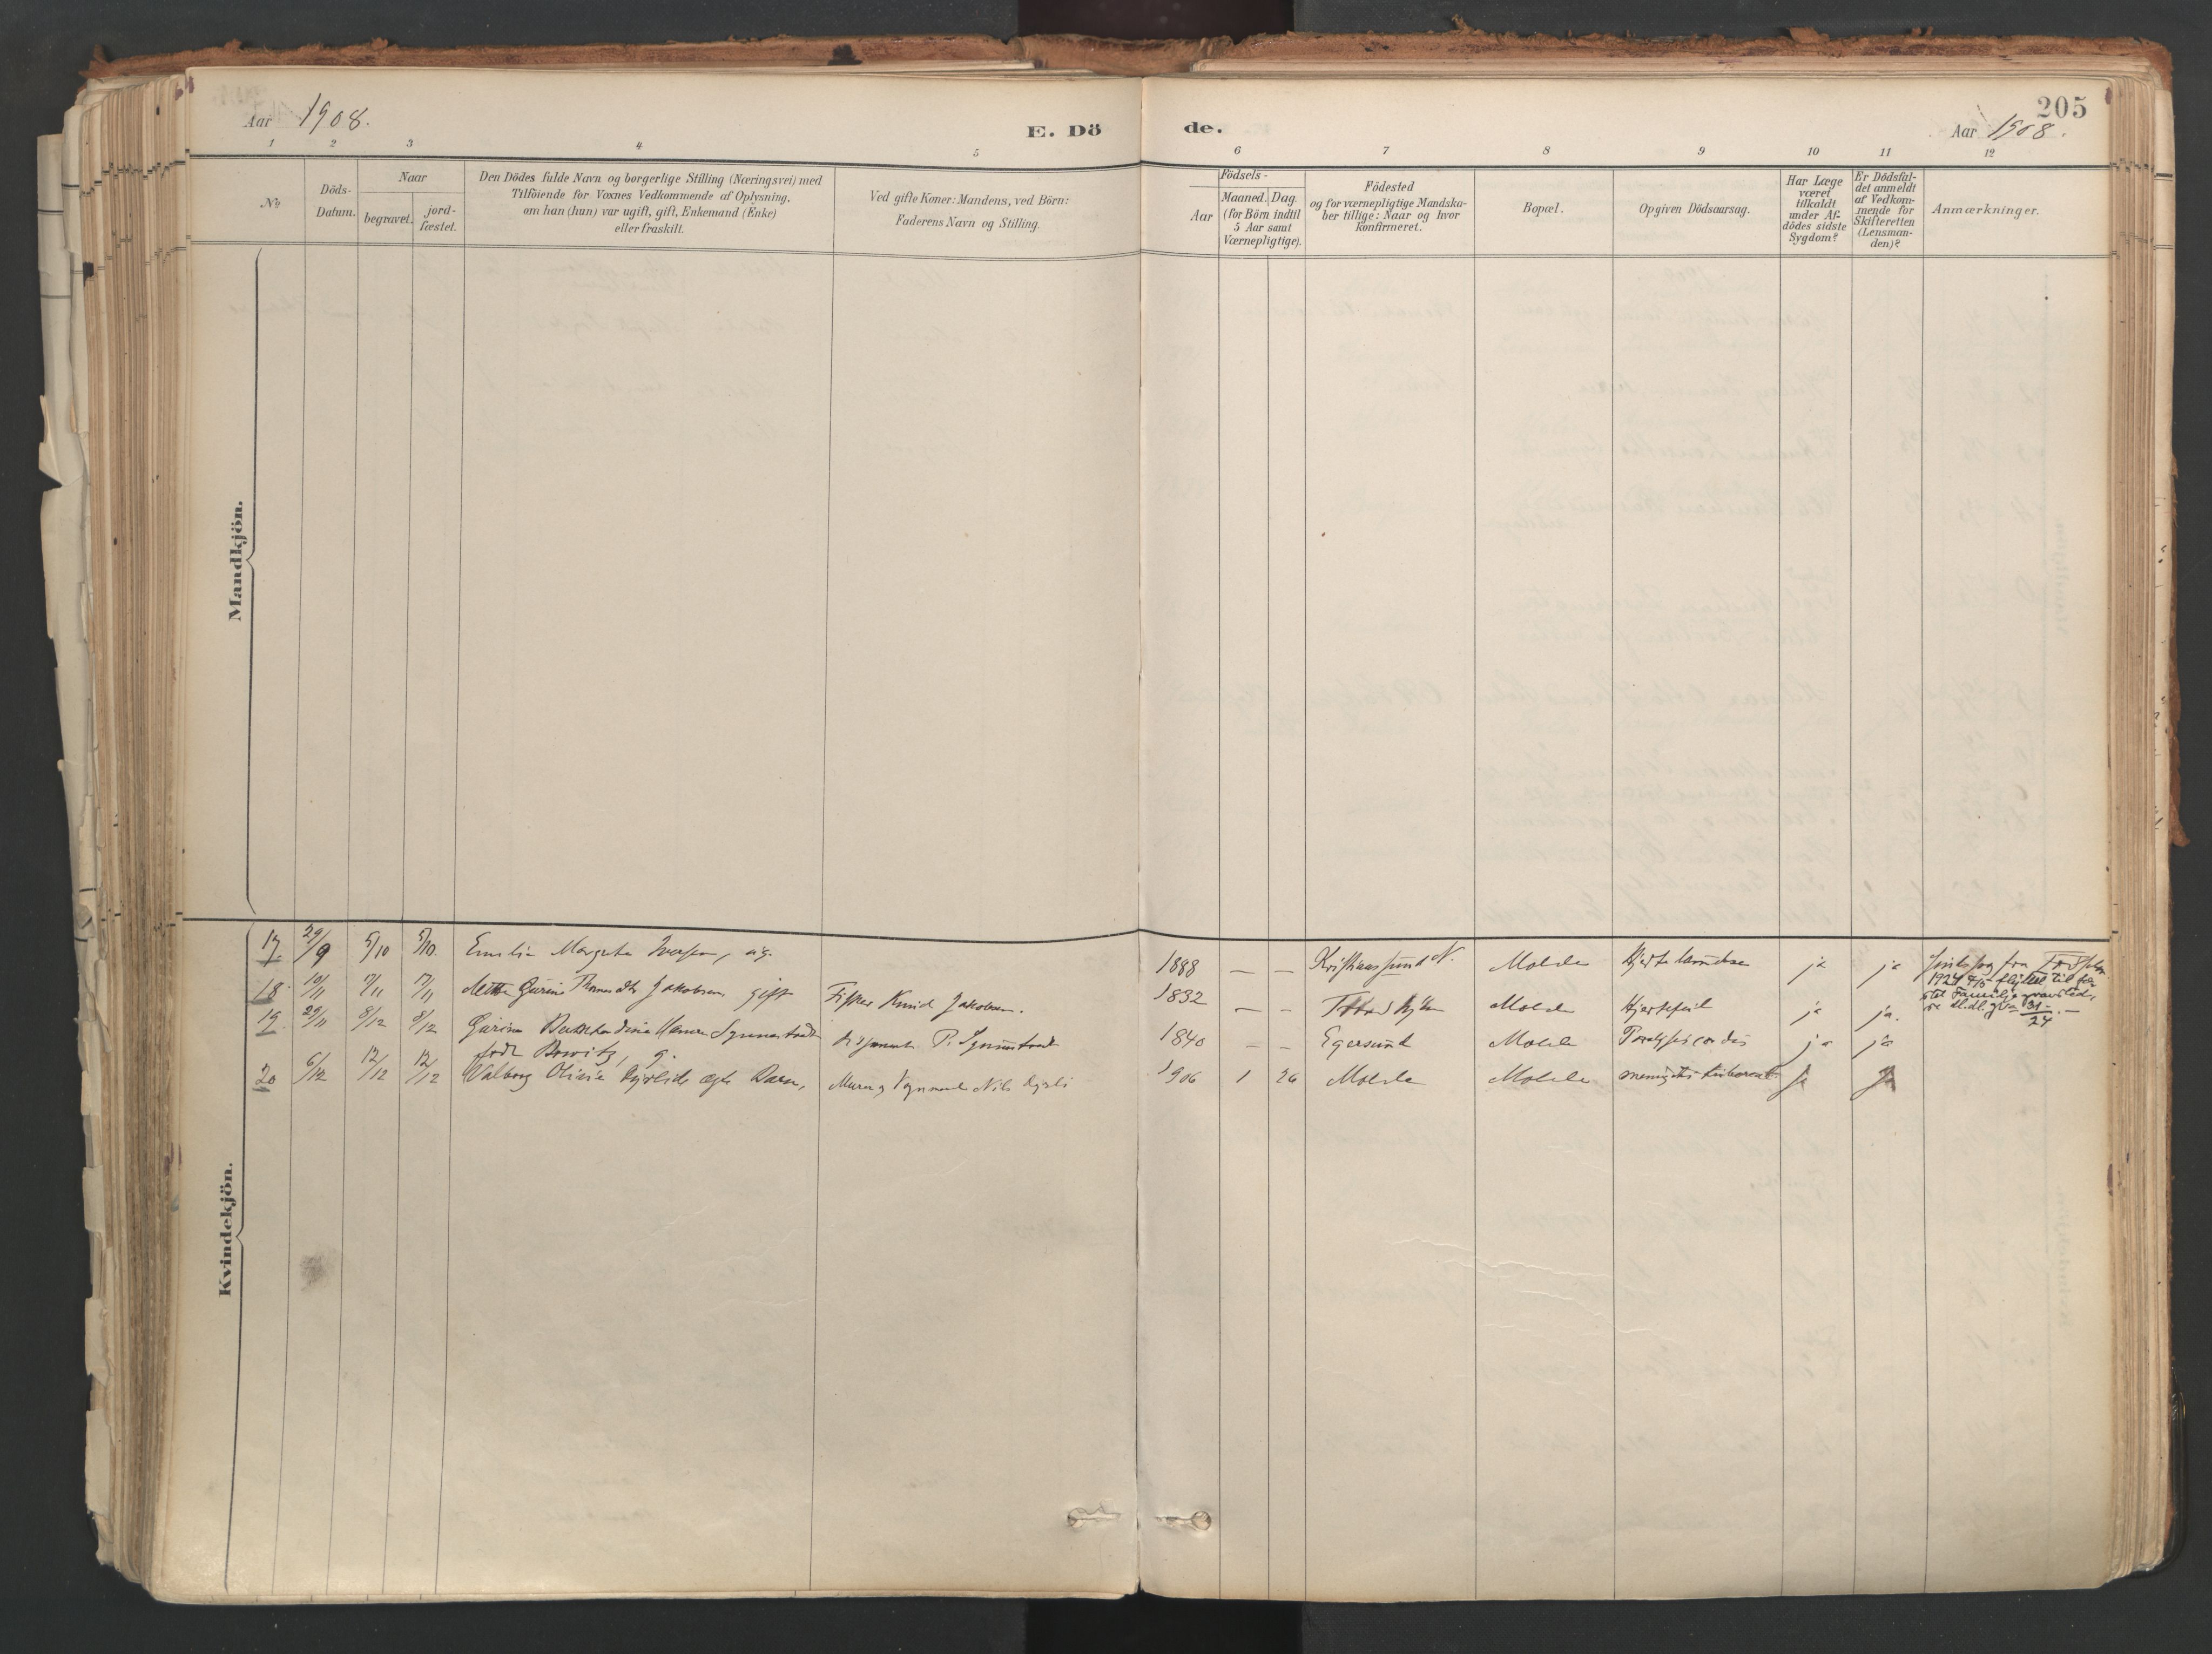 205
Aar 1908.
E. Dö de.
Aar 1908.
1 2 3 4 5 6 7 8 9 10 11 12
No
Döds-
Datum.
Naar
begravet.
jord-
fæstet.
Den Dödes fulde Navn og borgerlige Stilling (Næringsvei) med
Tilföiende for Voxnes Vedkommende af Oplysning,
om han (hun) var ugift, gift, Enkemand (Enke)
eller fraskilt.
Ved gifte Koner: Mandens, ved Börn:
Faderens Navn og Stilling.
Födsels-
Aar
Maaned. Dag.
(for Börn indtil
5 Aar samt
Værnepligtige).
Födested
og for værnepligtige Mandska-
ber tillige: Naar og hvor
konfirmeret.
Bopæl.
Opgiven Dödsaarsag.
Har Læge
været
tilkaldt
under Af-
dödes sidste
Sygdom?
Er Dödsfal-
det anmeldt
af Vedkom-
mende for
Skifteretten
(Lensman-
den)?
Anmærkninger.
Mandkjön.
Kvindekjön.
17. 29/9 5/10 5/10. Emilie Margrete Iversen, ug. 1888 — — Kristianssund N. Molde ja ja
18 10/11 17/11 17/11 Mette Gurine Jakobsen, gift Fisker Knud Jakobsen. 1832 — — Molde Hjertefeil ja ja.
1924 flyttet til
31
24
19. 29/11 8/12 8/12 Gurine Synnestvedt P. Synnestvedt 1840 — — Egersund Molde Paralysis cordis ja ja
födt g.
20 6/12 12/12 12/12 Valborg Olivia ægte Barn, Murer Nils 1906 1 26 Molde Molde ja ja